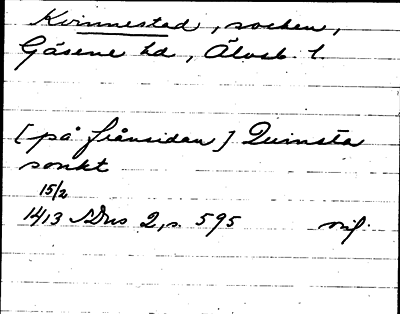 Kvinnestad, socken,
Gäsene hd, Älvsb. l.
[på frånsidan] Quinsta
sonkt
15/2
1413 SDns 2, s. 595 orig.